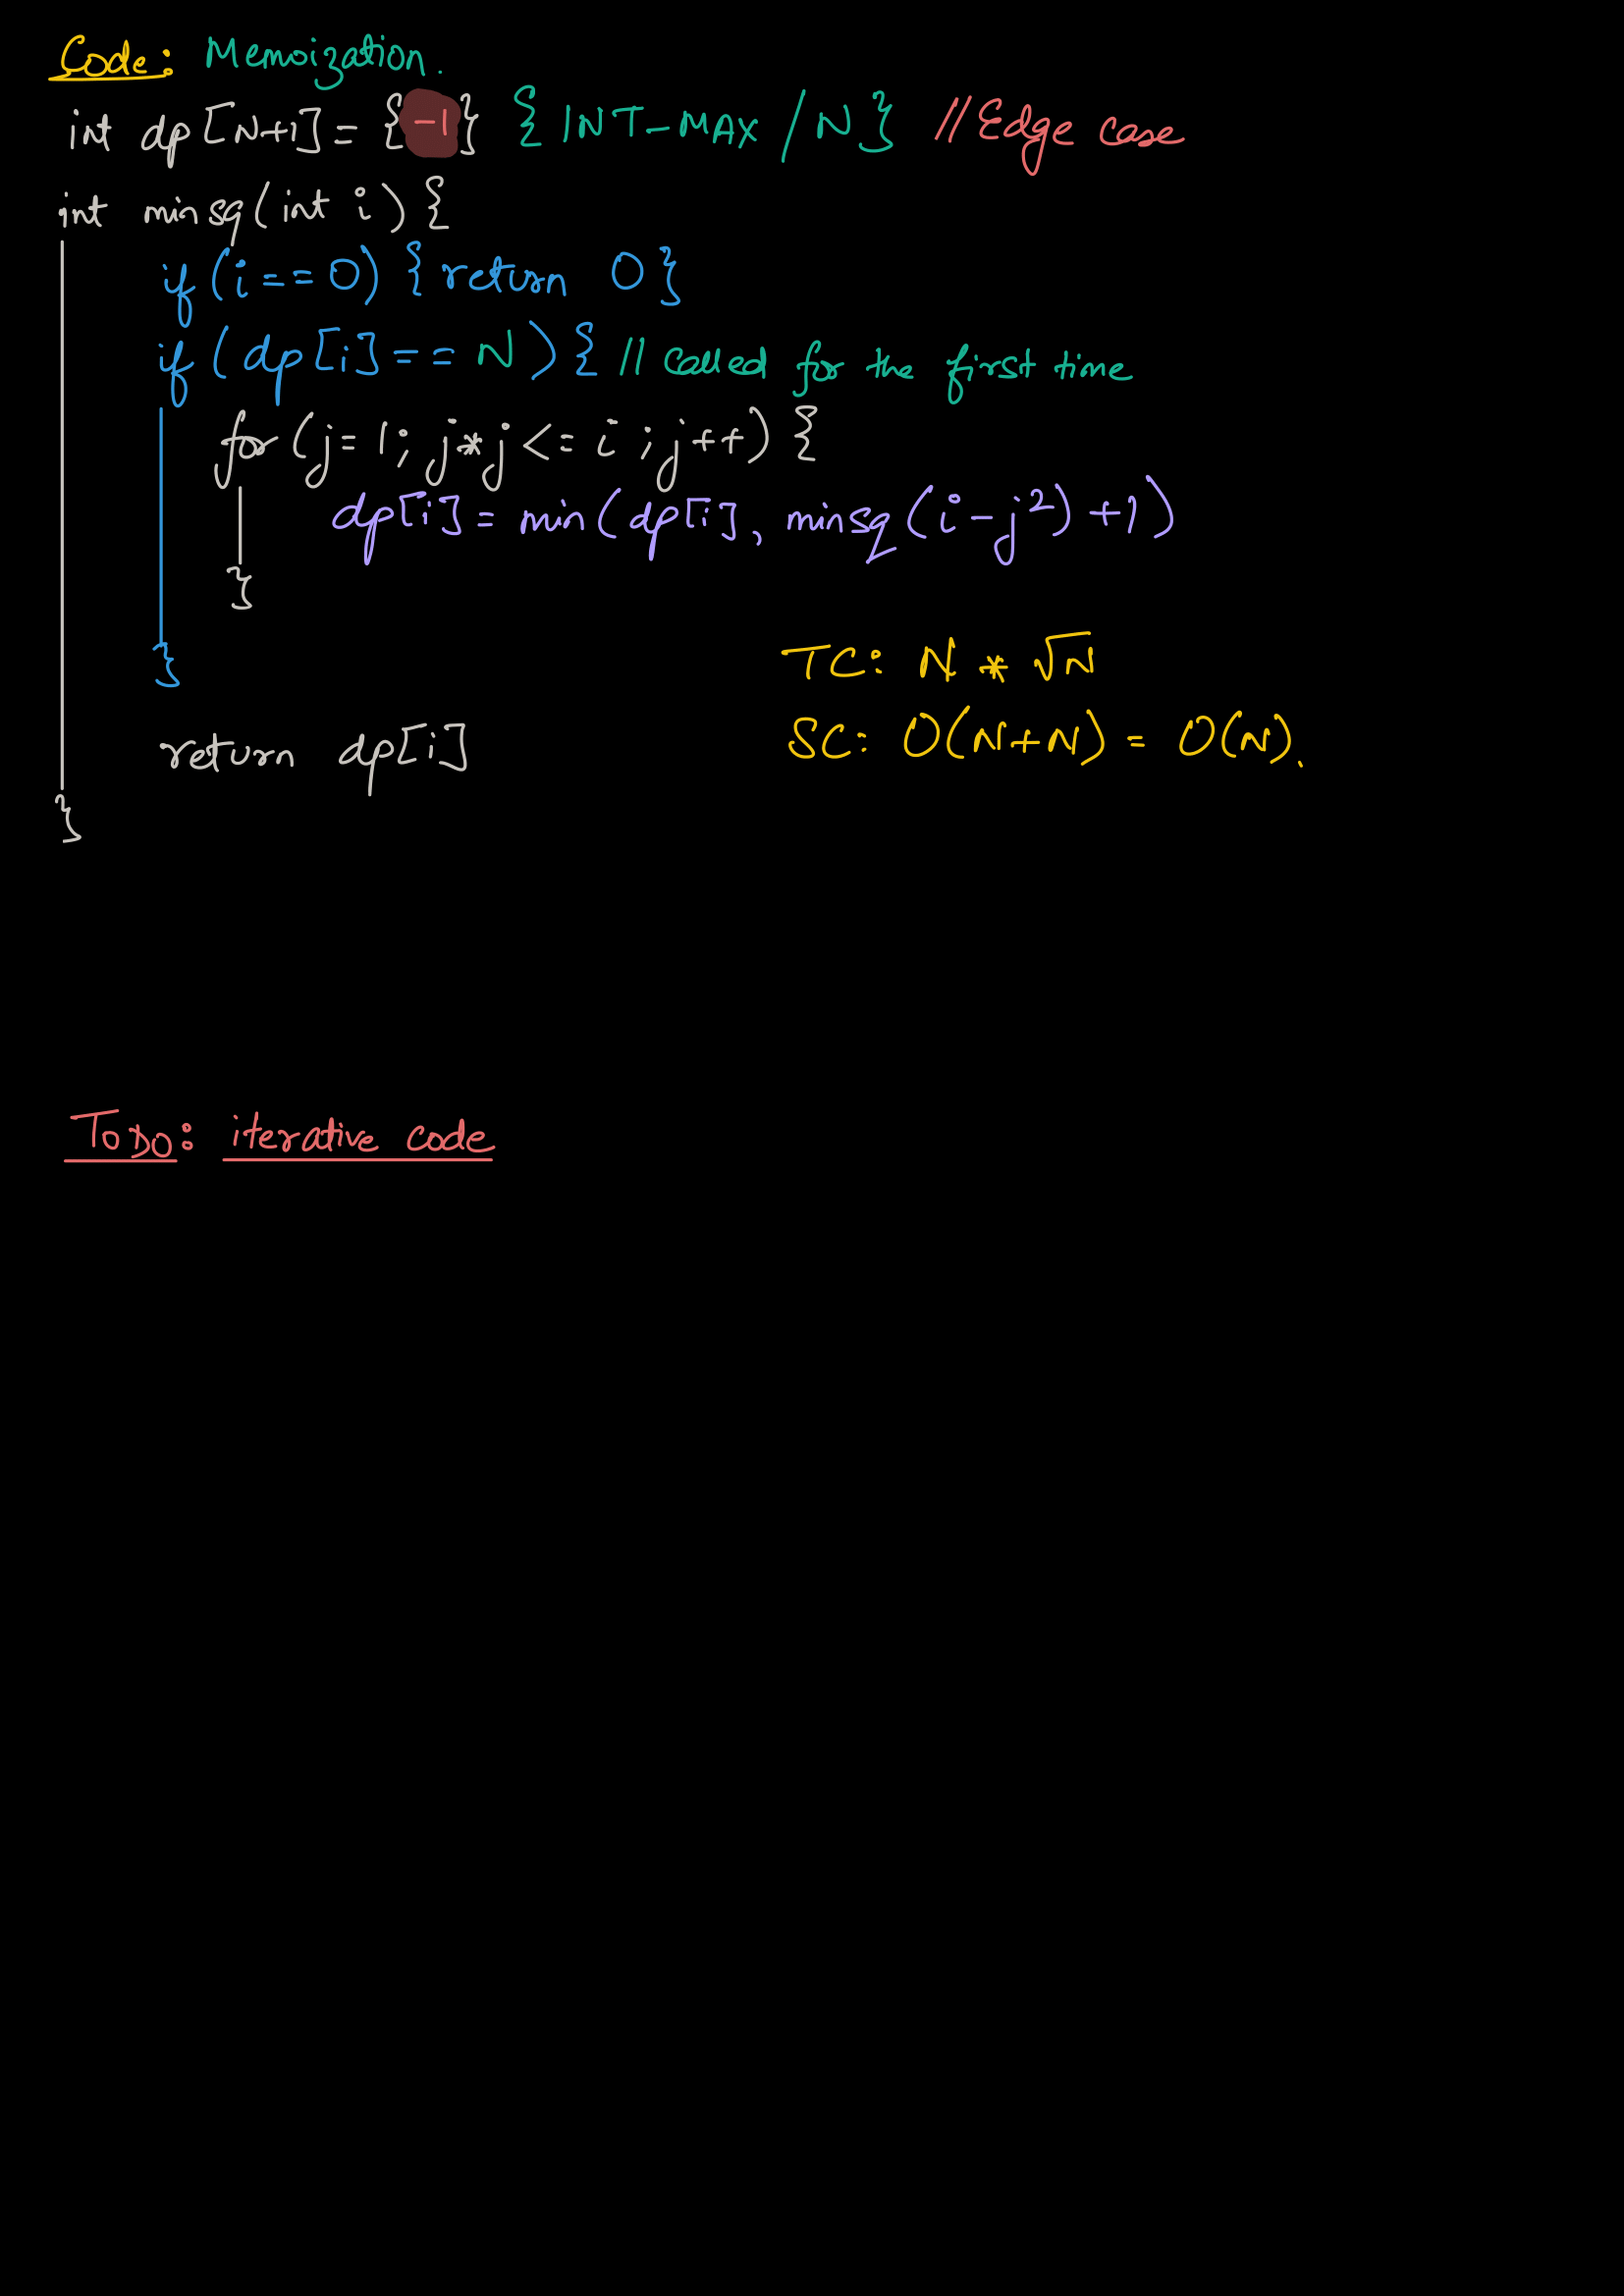 Code: Memoization.
int dp[N+1] = {-1} {INT-MAX/N} // Edge case
int minsq(int i) {
if (i == 0) {return 0}
if (dp[i] == N) { // called for the first time
for (j=1; j*j <= i ; j++) {
dp[i] = min(dp[i], minsq(i-j²)+1)
}
}
TC: N * √N
return dp[i]
SC: O(N+N) = O(N).
}
TODO: iterative code